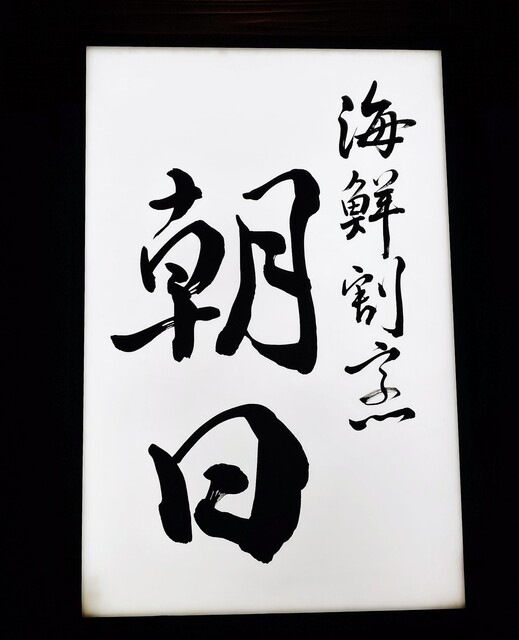 海鮮割烹
朝日